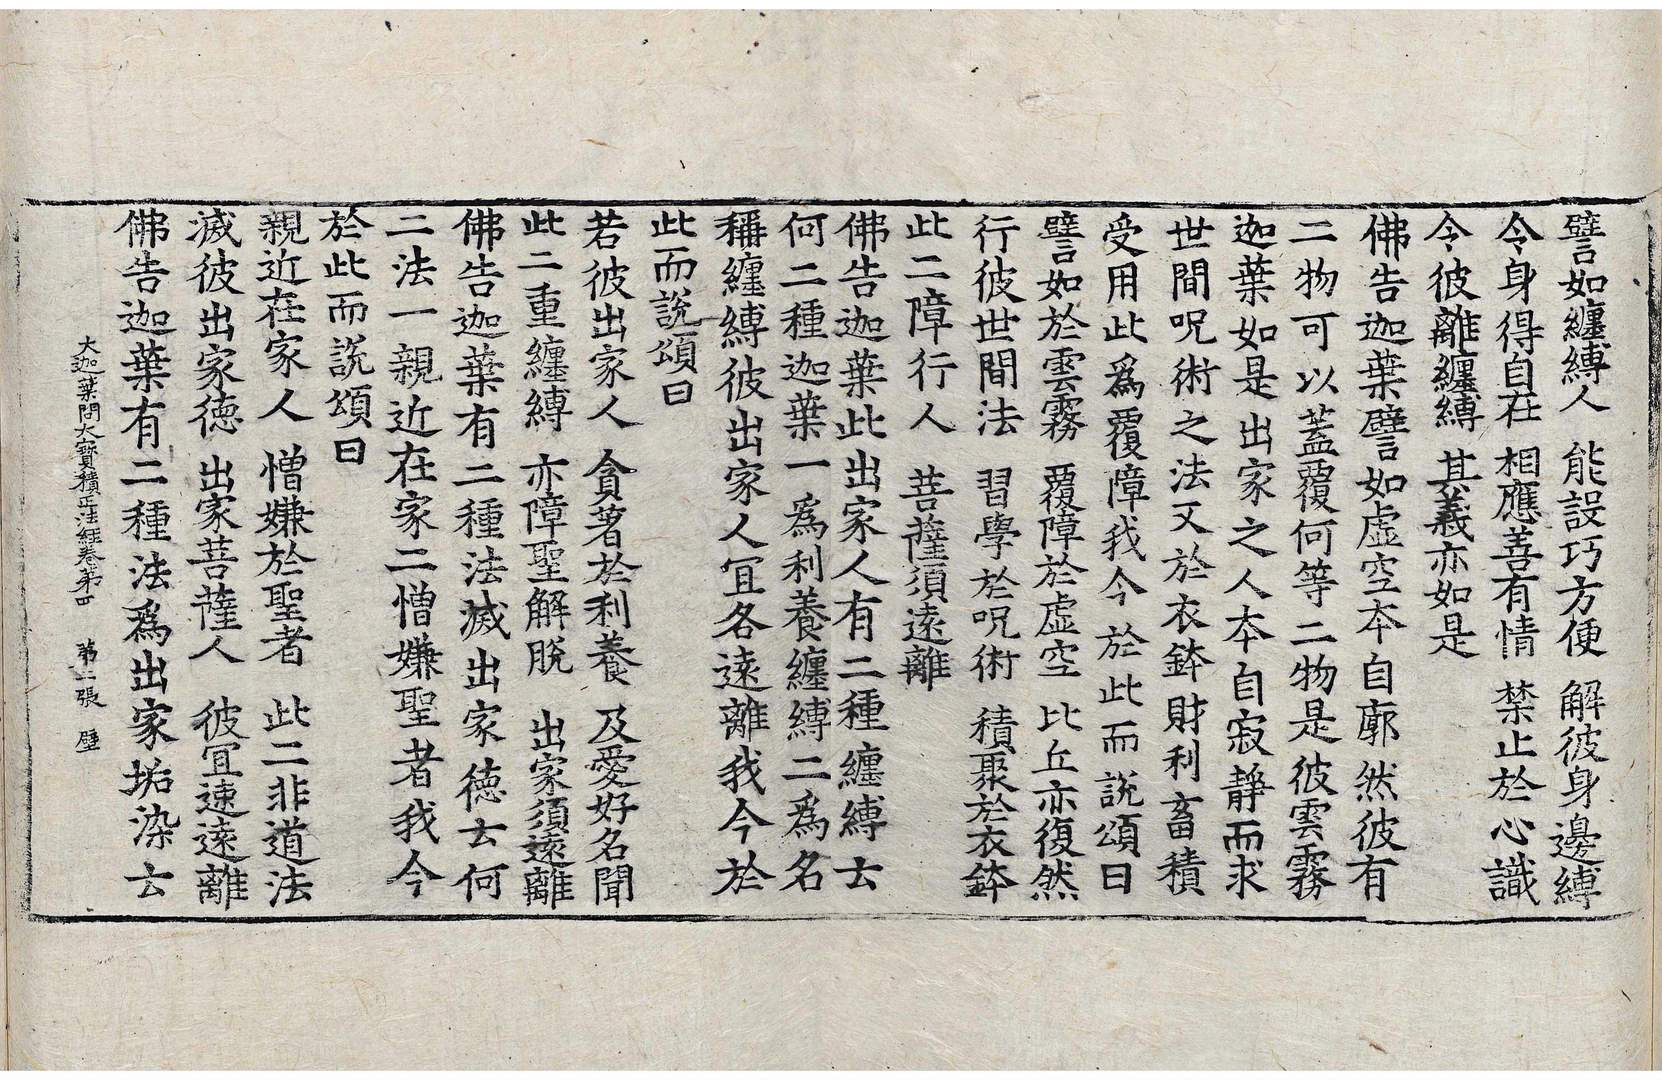 譬如纏縛人　能設巧方便　解彼身邊縛
令身得自在　相應善有情　禁止於心識
令彼離纏縛　其義亦如是
佛告迦葉譬如虛空本自廓然彼有
二物可以蓋覆何等二物是彼雲霧
迦葉如是出家之人本自寂靜而求
世間呪術之法又於衣鉢財利畜積
受用此爲覆障我今於此而說頌曰
譬如於雲霧　覆障於虛空　比丘亦復然
行彼世間法　習學於呪術　積聚於衣鉢
此二障行人　菩薩須遠離
佛告迦葉此出家人有二種纏縛云
何二種迦葉一爲利養纏縛二爲名
稱纏縛彼出家人冝各遠離我今於
此而說頌曰
若彼出家人　貪著於利養　及愛好名聞
此二重纏縛　亦障聖解脫　出家須遠離
佛告迦葉有二種法滅出家德云何
二法一親近在家二憎嫌聖者我今
於此而說頌曰
親近在家人　憎嫌於聖者　此二非道法
滅彼出家德　出家菩薩人　彼冝速遠離
大迦葉問大寶積正法經卷第四　第二張　壁
佛告迦葉有二種法爲出家垢染云